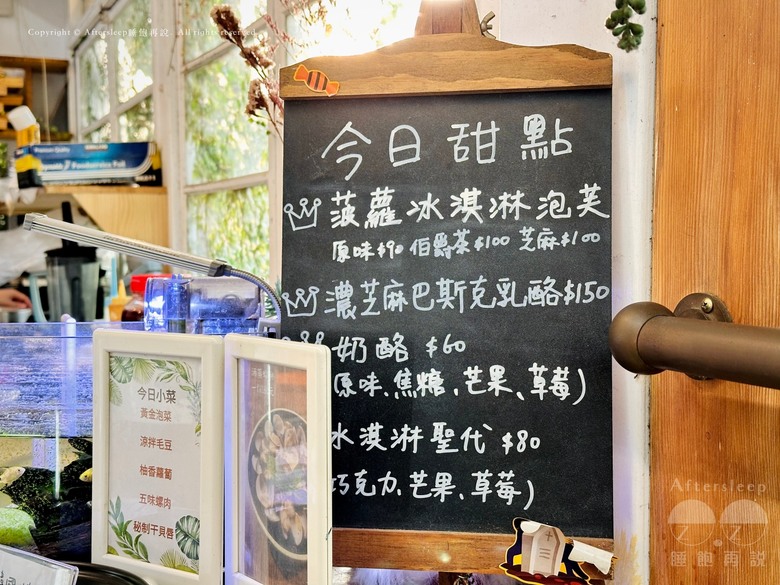 Copyright © Aftersleep睡飽再說 All rights reserved
今日甜點
菠蘿冰淇淋泡芙
原味$90 伯爵茶$100 芝麻$100
濃芝麻巴斯克乳酪$150
奶酪 $60
原味、焦糖、芒果、草莓)
冰淇淋聖代 $80
巧克力、芒果、草莓)
今日小菜
黃金泡菜
涼拌毛豆
柚香蘿蔔
五味螺肉
秘制干貝唇
Aftersleep
睡飽再說